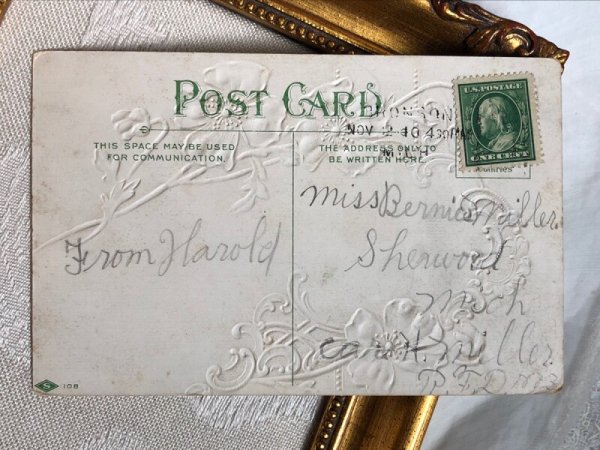 POST CARD
THIS SPACE MAY BE USED
FOR COMMUNICATION.
THE ADDRESS ONLY TO
BE WRITTEN HERE.
BRONSON
NOV 2 10 430PM
MICH
U.S. POSTAGE
ONE CENT
Countries
From Harold
Miss Bernice Miller
Sherwood
Mich
car H. Miller
R.F.D.
S 108